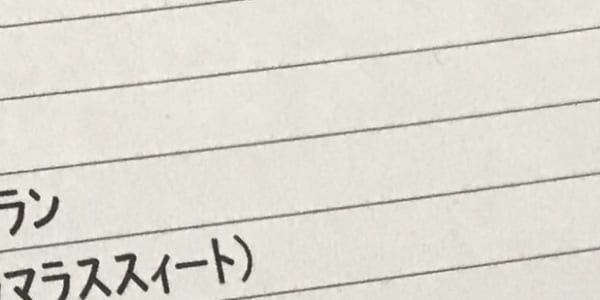 ラン
マラススィート)